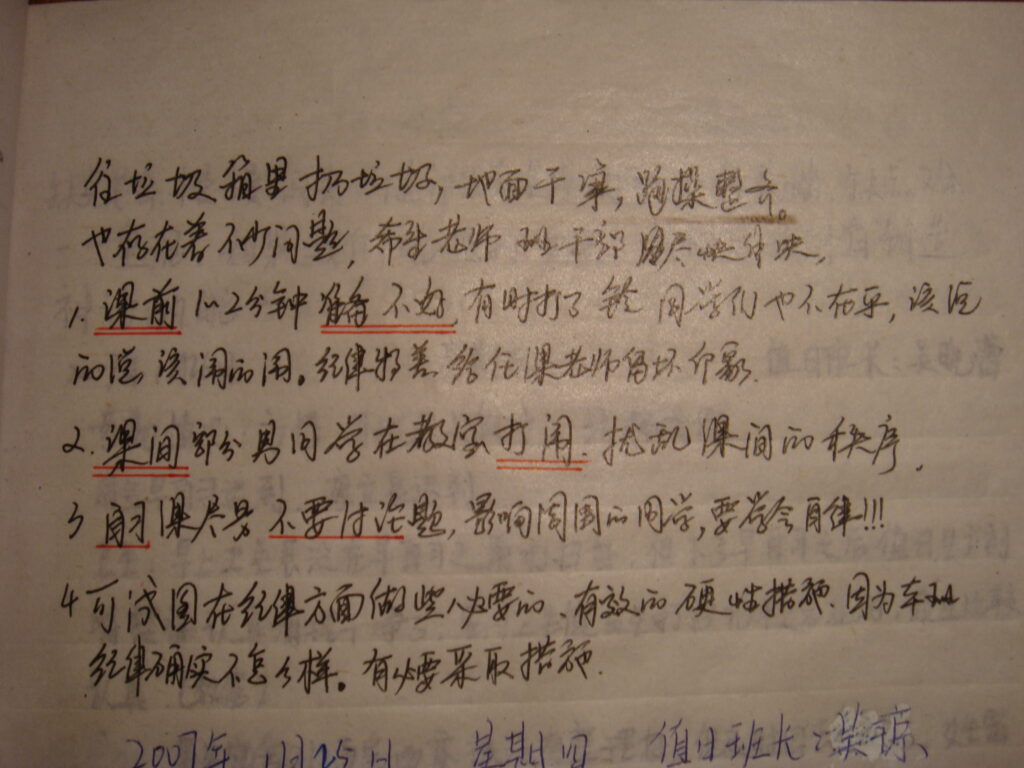 往垃圾箱里扔垃圾,地面干穿,跑操整齐。
也存在着不少问题,希望老师 班干部 尽快解决,
1. 课前1~2分钟 不好,有时打了铃 同学们也不在乎,该说
的说 该闹的闹。纪律特差 给任课老师留坏印象.
2. 课间部分男同学在教室打闹. 扰乱课间的秩序.
3 自习课尽量不要讨论题,影响周围的同学,要学会自律!!!
4 可试图在纪律方面做些必要的、有效的硬性措施. 因为本班
纪律确实不怎么样。有必要采取措施.
2007年 1月25日 星期四 值日班长: